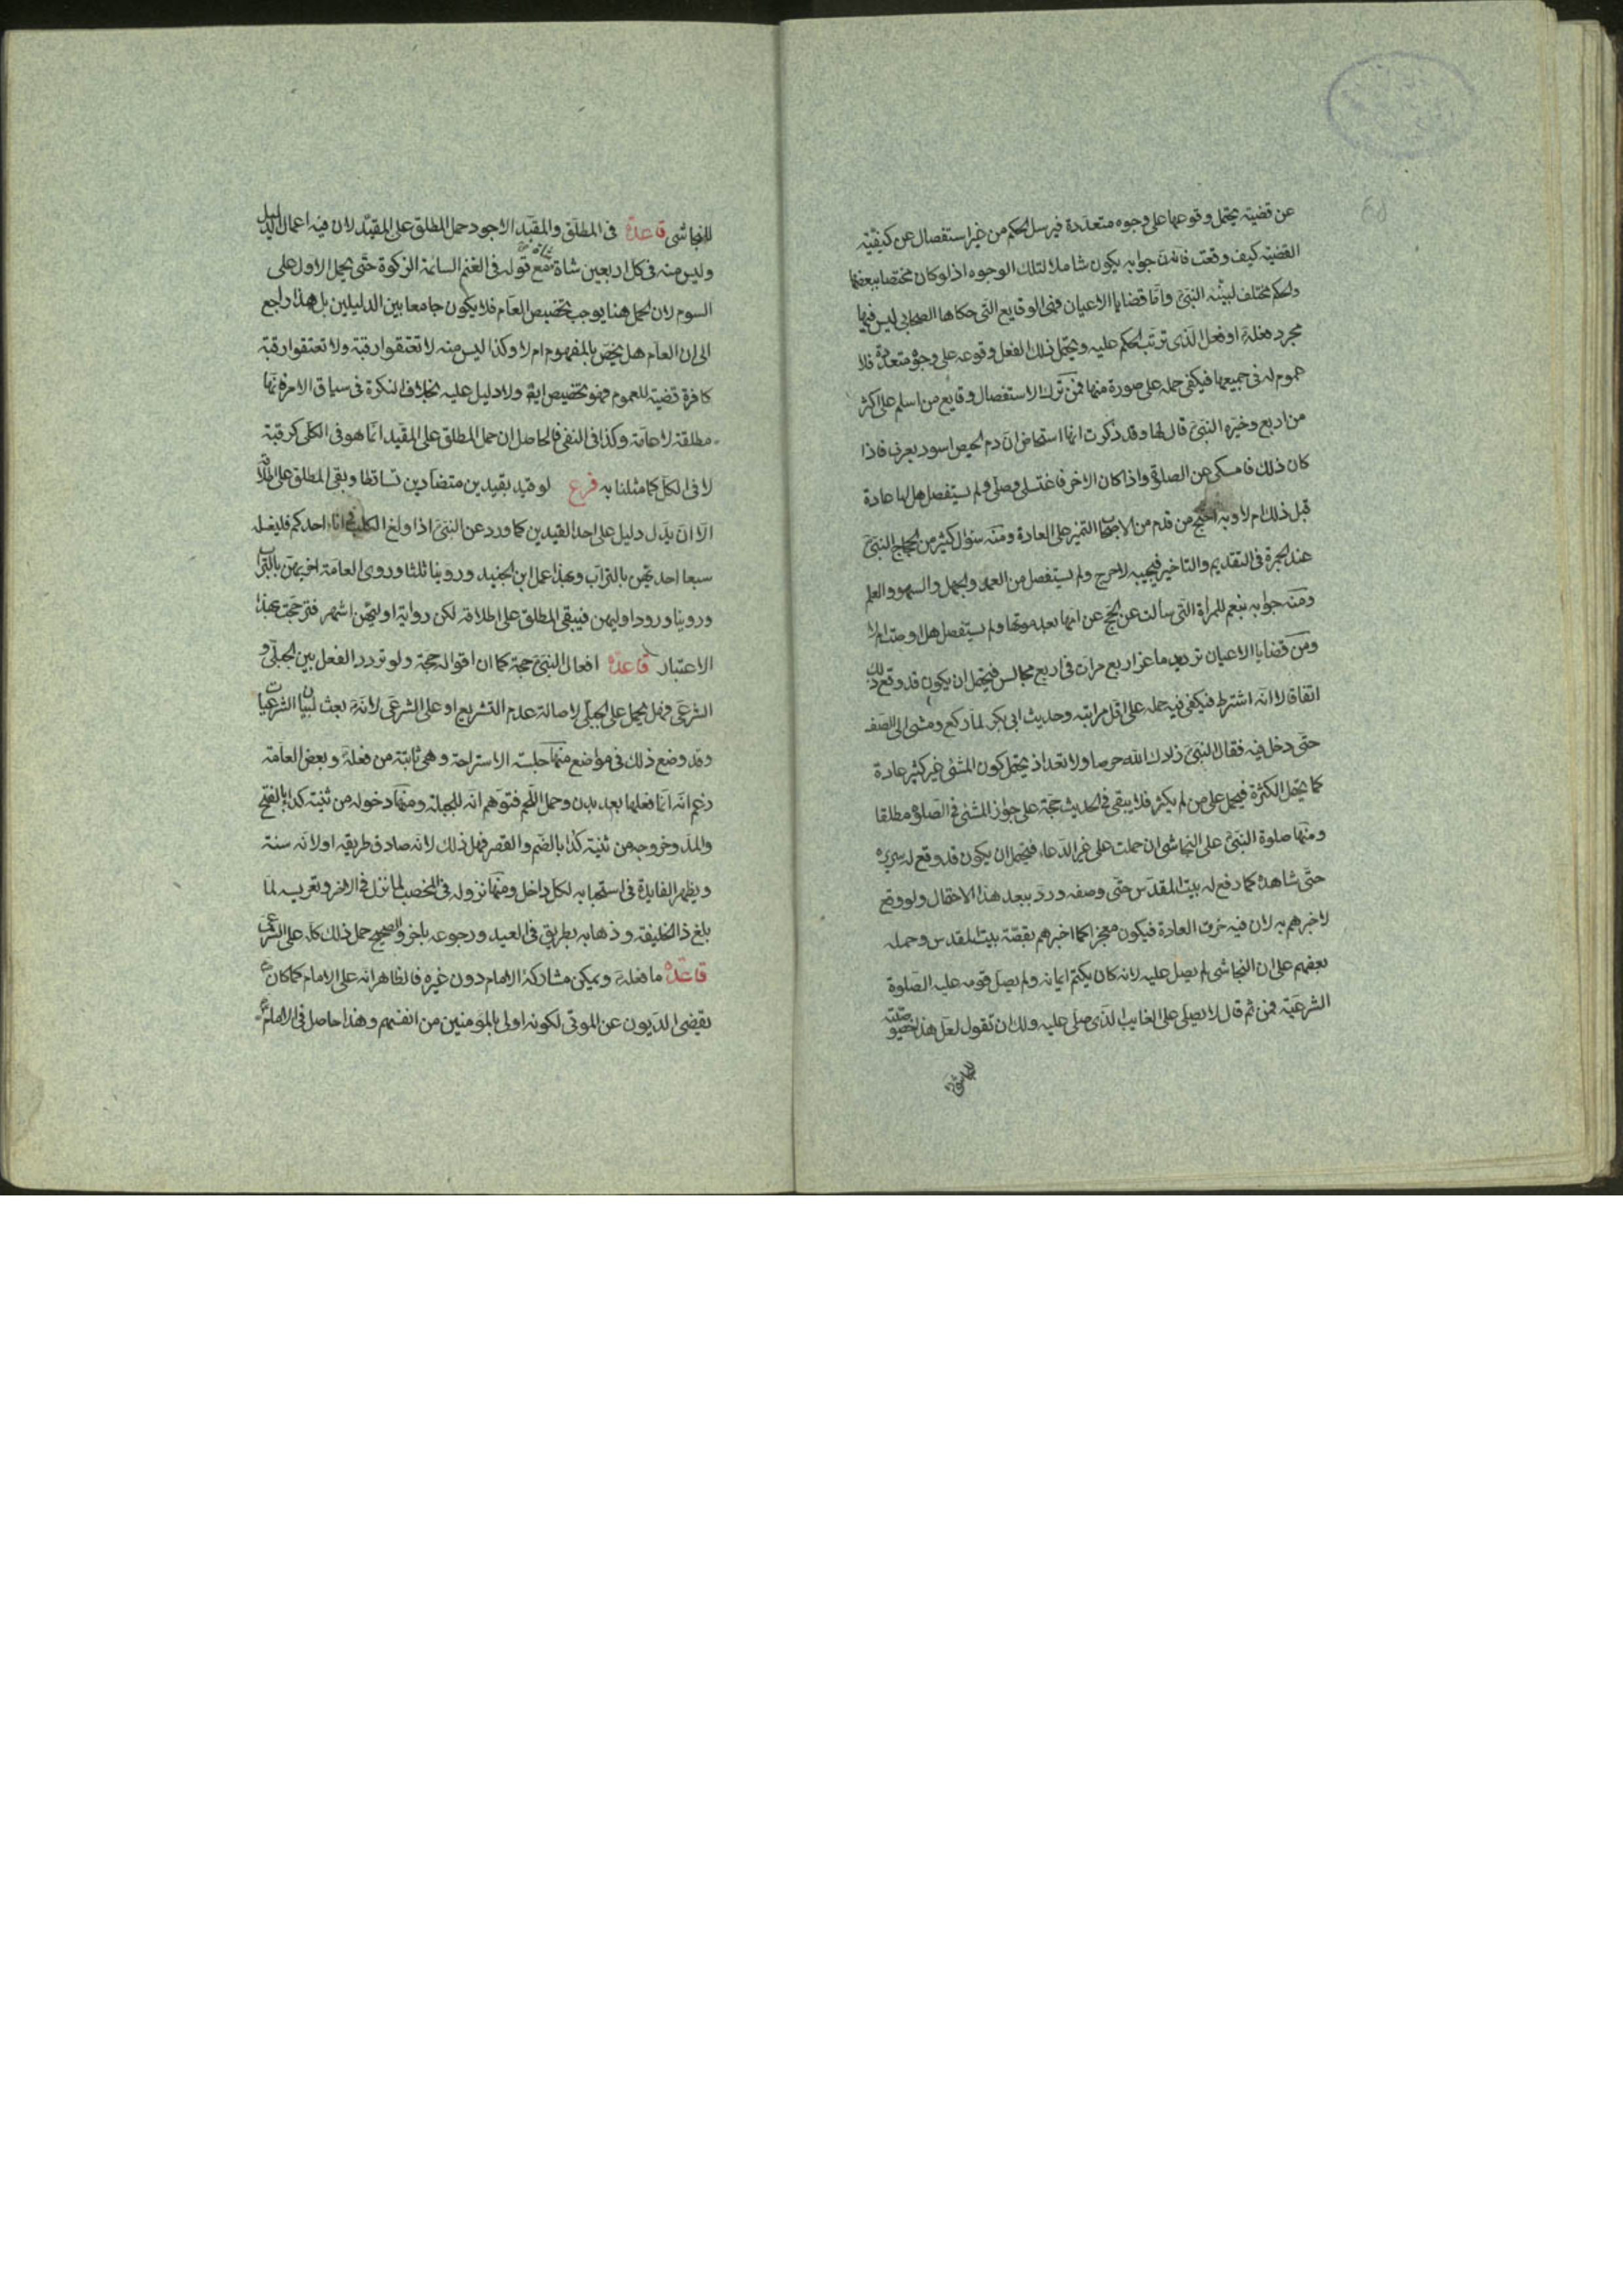 عن قضية يحتمل وقوعها على وجوه متعددة فيرسل الحكم من غير استفصال عن كيفية
القضية كيف وقعت فان جوابه يكون شاملا لتلك الوجوه اذ لو كان مختصا ببعضها
والحكم مختلف لبينه النبي واما قضايا الاعيان فهى الوقايع التى حكاها الصحابي ليس فيها
مجرد فعله او فعل الذى ترتب الحكم عليه ويحتمل ذلك الفعل وقوعه على وجوه متعددة فلا
عموم له فى جميعها فيكفى حمله على صورة منها فمن ترك الاستفصال وقايع من اسلم على اكثر
من اربع وخيره النبي قال لها وقد ذكرت انها استحاض ان دم الحيض اسود يعرف فاذا
كان ذلك فامسكى عن الصلوة واذا كان الاخر فاغتسلى وصلى ولم يستفصل هل لها عادة
قبل ذلك ام لا وبه احتج من قدم من الاصحاب التميز على العادة ومنه سؤال كثير من الحجاج النبي
عند الجمرة فى التقديم والتاخير فيجيب لا حرج ولم يستفصل من العمد والجهل والسهو والعلم
ومنه جوابه بنعم للمراة التى سالت عن الحج عن امها بعد موتها ولم يستفصل هل اوصت ام لا
ومن قضايا الاعيان ترديد ماعز اربع مرات فى اربع مجالس فيحتمل ان يكون قد وقع ذلك
اتفاقا لا انه اشترط فيكفى فيه حمله على اقل مراتبه وحديث ابى بكر لما ركع ومشى الى الصف
حتى دخل فيه فقال النبي زادك الله حرصا ولا تعد اذ يحتمل كون المشى غير كثير عادة
كما يحتمل الكثرة فيحمل على من لم يكثر فلا يبقى فى الحديث حجة على جواز المشى فى الصلوة مطلقا
ومنها صلوة النبي على النجاشى ان حملت على غير الدعاء فيحتمل ان يكون قد وقع له سريره
حتى شاهده كما رفع له بيت المقدس حتى وصفه ورد ببعد هذا الاحتمال ولو وقع
لاخبرهم به لان فيه خرق العادة فيكون معجزا كما اخبرهم بقصة بيت المقدس وحمله
بعضهم على ان النجاشى لم يصل عليه لانه كان يكتم ايمانه ولم يصل قومه عليه الصلوة
الشرعية فمن ثم قال لا يصلى على الغايب الذى صلى عليه ولك ان تقول لعل هذا خصوصية
للنجاشى
للنجاشى قاعدة فى المطلق والمقيد الاجود حمل المطلق على المقيد لان فيه اعمال الدليل
وليس منه فى كل اربعين شاة شاة مع قوله فى الغنم السائمة الزكوة حتى يحمل الاول على
السوم لان الحمل هنا يوجب تخصيص العام فلا يكون جامعا بين الدليلين بل هذا راجع
الى ان العام هل يخص بالمفهوم ام لا وكذا ليس منه لا تعتقوا رقبة ولا تعتقوا رقبة
كافرة قضية للعموم فهو تخصيص ايضا ولا دليل عليه بخلاف النكرة فى سياق الامر فانها
مطلقة لا عامة وكذا فى النفى فالحاصل ان حمل المطلق على المقيد انما هو فى الكلى كرقبة
لا فى الكل كما مثلنا به فرع لو قيد بقيدين متضادين تساقطا وبقى المطلق على اطلاقه
الا ان يدل دليل على احد القيدين كما ورد عن النبي اذا ولغ الكلب فى اناء احدكم فليغسله
سبعا احديهن بالتراب وبهذا عمل ابن الجنيد وروينا ثلثا وروى العامة اخريهن بالتراب
وروينا ورود اوليهن فيبقى المطلق على اطلاقه لكن رواية اوليهن اشهر فترجحت بهذا
الاعتبار قاعدة افعال النبي حجة كما ان اقواله حجة ولو تردد الفعل بين الجبلى و
الشرعى فهل يحمل على الجبلى لاصالة عدم التشريع او على الشرعى لانه بعث لبيان الشرعيات
وقد وضع ذلك فى مواضع منها جلسة الاستراحة وهى ثابتة من فعله وبعض العامة
زعم انه انما فعلها بعد بدن وحمل اللحم فتوهم انه للجبلة ومنها دخوله من ثنية كدا بالفتح
والمد وخروجه من ثنية كدا بالضم والقصر فهل ذلك لانه صادف طريقه او لانه سنة
ويظهر الفايدة فى استحبابه لكل داخل ومنها نزوله فى المحصب لما نزل فى الاخر وتعريسه لما
بلغ ذا الخليفة وذهابه بطريق فى العيد ورجوعه بآخر والصحيح حمل ذلك كله على الشرعى
قاعدة ما فعله ويمكن مشاركة الامام دون غيره فالظاهر انه على الامام كما كان
يقضى الديون عن الموتى لكونه اولى بالمؤمنين من انفسهم وهذا حاصل فى الامام